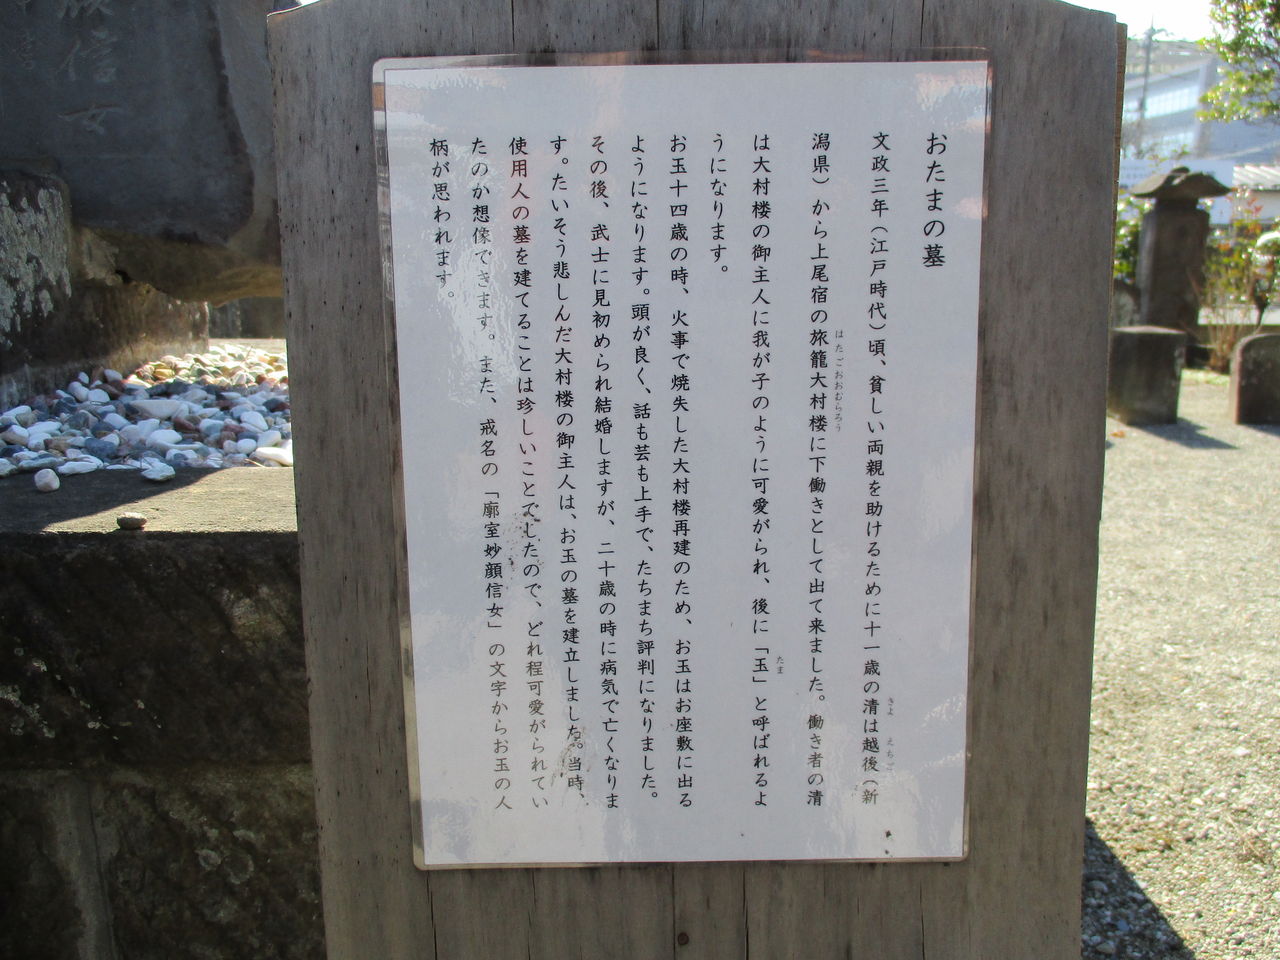 おたまの墓
文政三年（江戸時代）頃、貧しい両親を助けるために十一歳の清は越後（新
きよ
えちご
潟県）から上尾宿の旅籠大村楼に下働きとして出て来ました。働き者の清
はたごおおむらろう
は大村楼の御主人に我が子のように可愛がられ、後に「玉」と呼ばれるよ
たま
うになります。
お玉十四歳の時、火事で焼失した大村楼再建のため、お玉はお座敷に出る
ようになります。頭が良く、話も芸も上手で、たちまち評判になりました。
その後、武士に見初められ結婚しますが、二十歳の時に病気で亡くなりま
す。たいそう悲しんだ大村楼の御主人は、お玉の墓を建立しました。当時、
使用人の墓を建てることは珍しいことでしたので、どれ程可愛がられてい
たのか想像できます。また、戒名の「廓室妙顔信女」の文字からお玉の人
柄が思われます。
信女